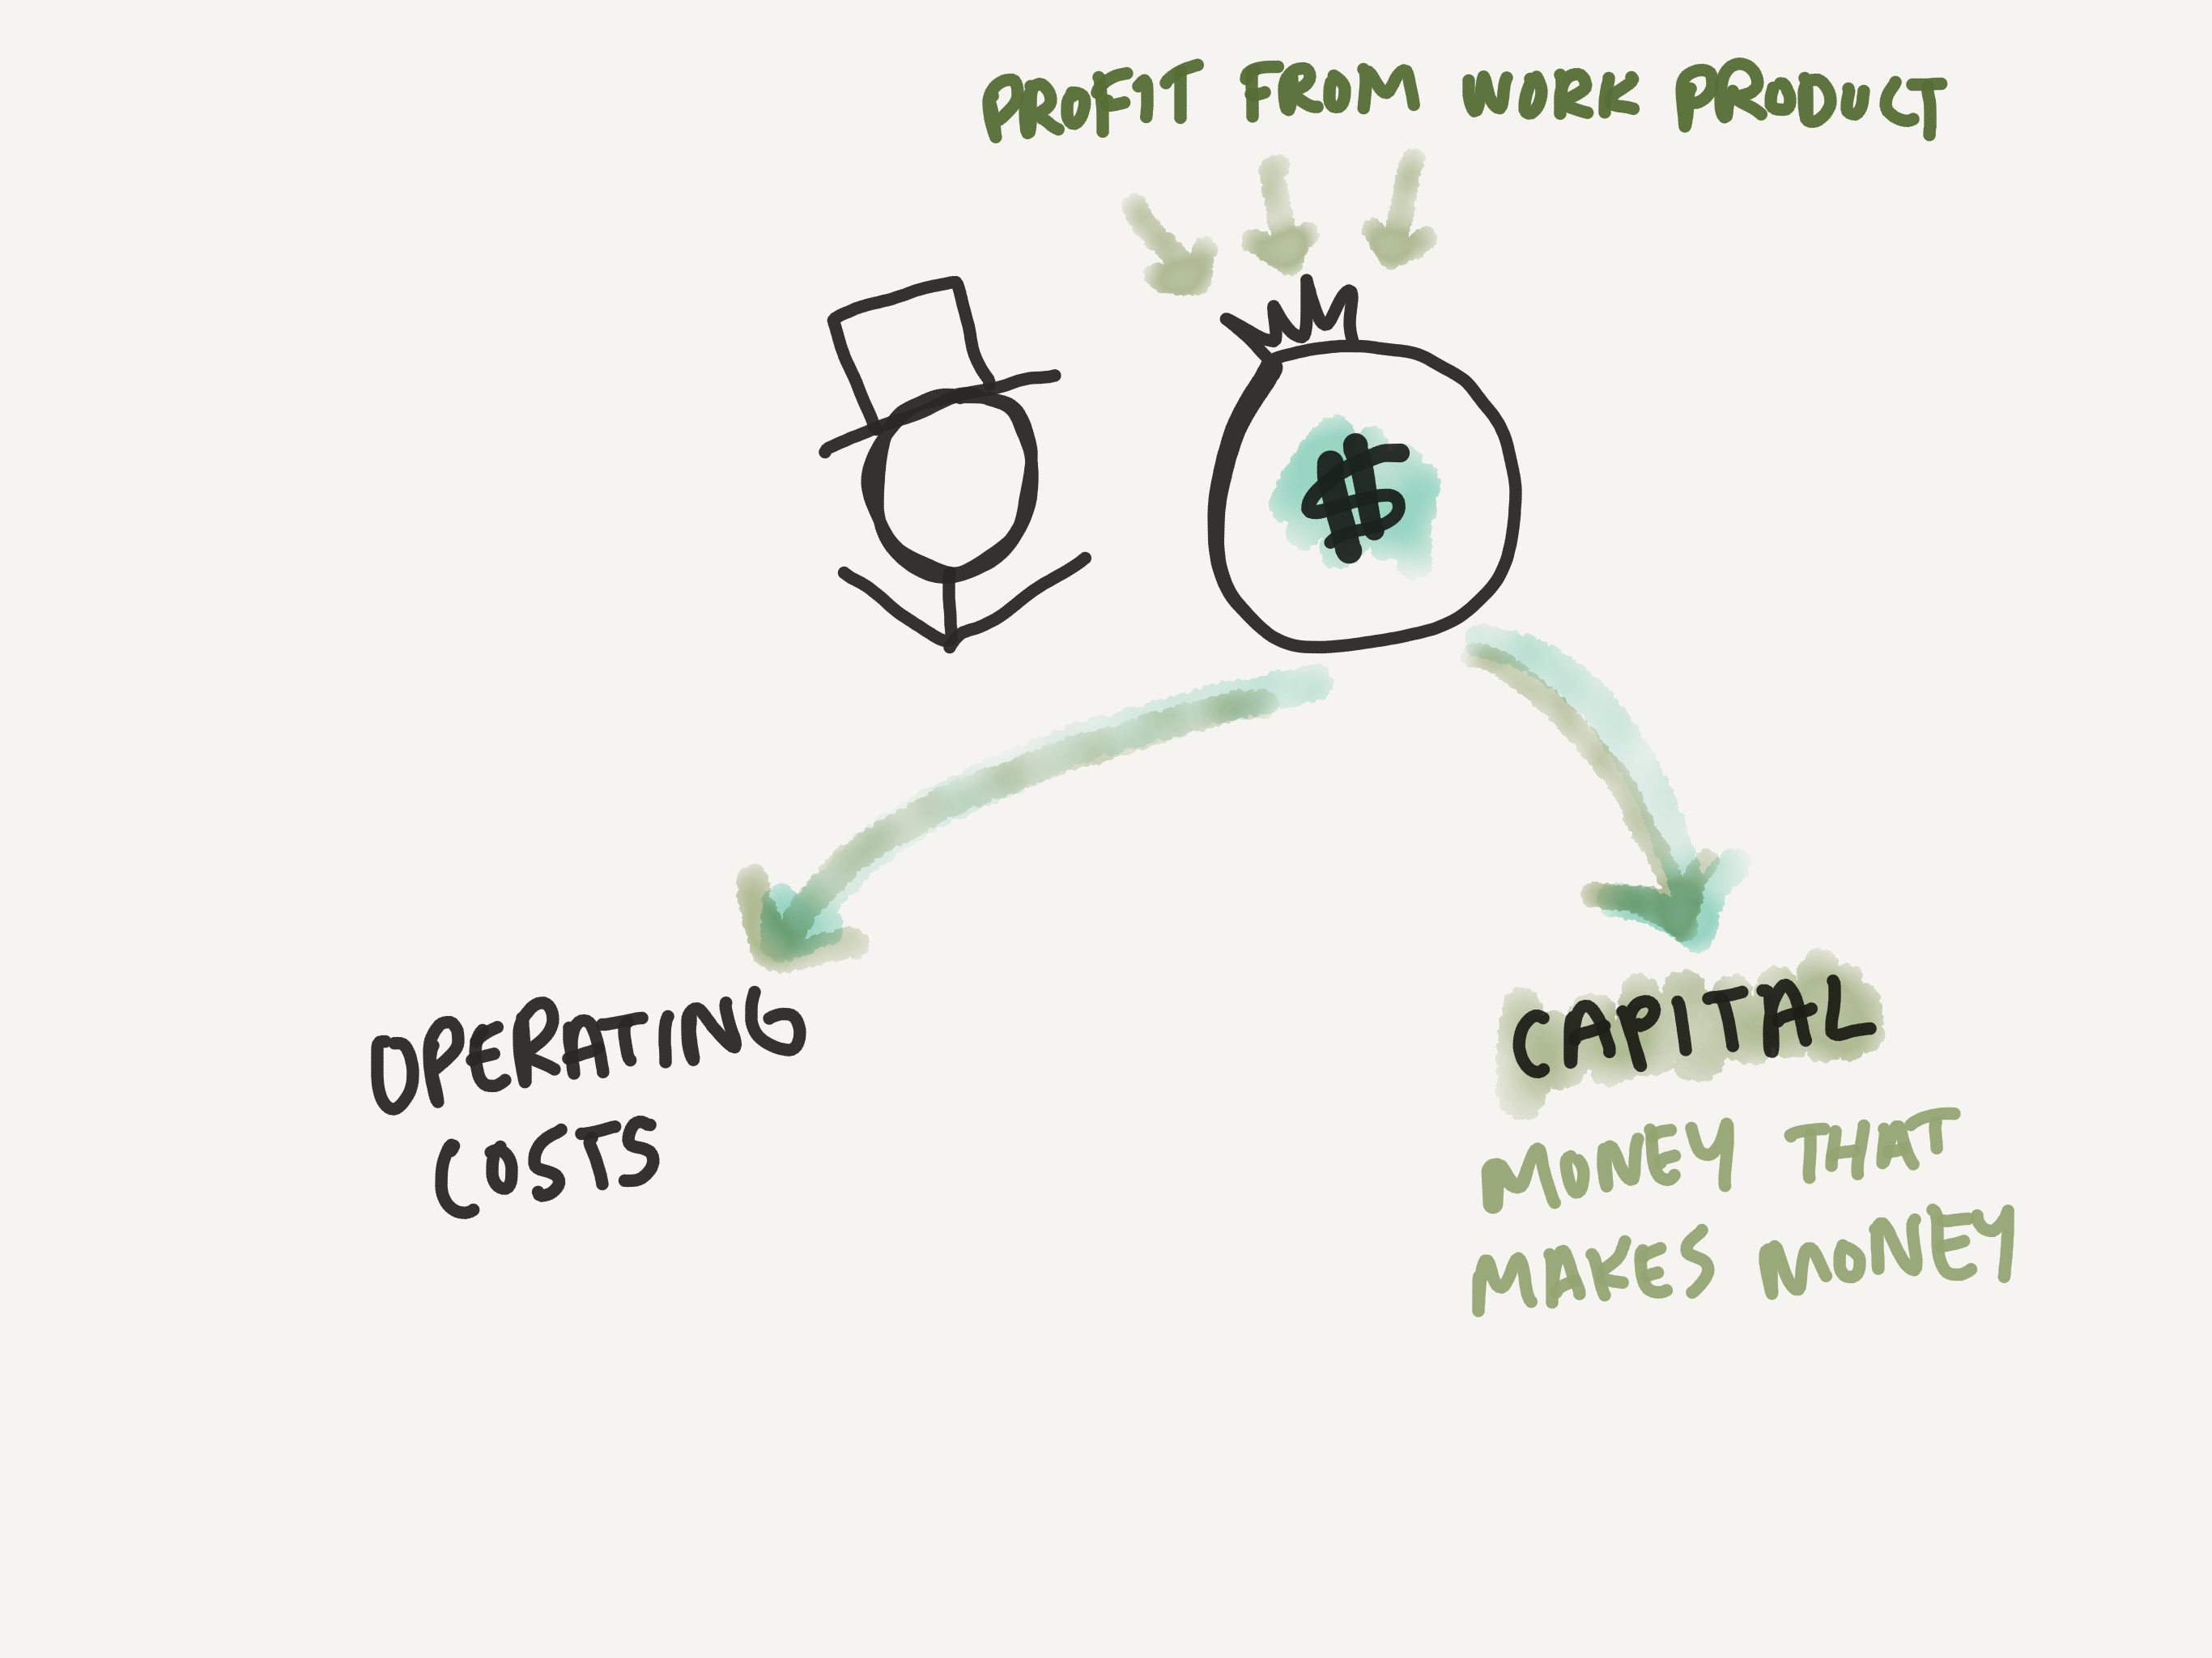 PROFIT FROM WORK PRODUCT
$
OPERATING
COSTS
CAPITAL
MONEY THAT
MAKES MONEY